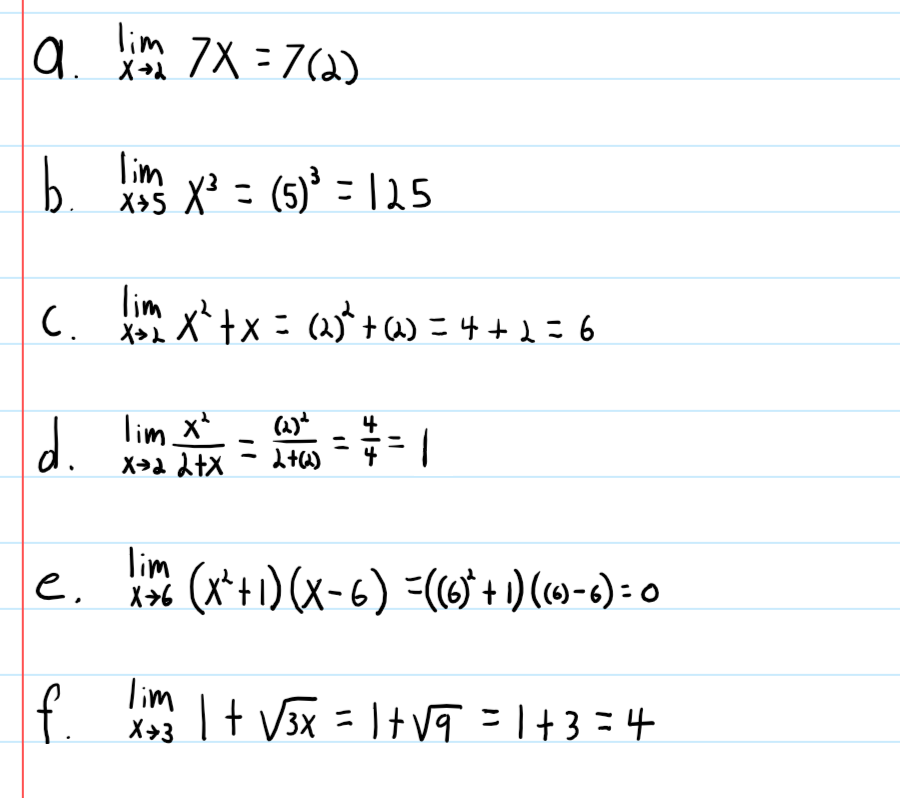 a. lim x→2 7x = 7(2)
b. lim x→5 x³ = (5)³ = 125
c. lim x→2 x² + x = (2)² + (2) = 4 + 2 = 6
d. lim x→2 x²/(2+x) = (2)²/(2+(2)) = 4/4 = 1
e. lim x→6 (x²+1)(x-6) = ((6)²+1)((6)-6) = 0
f. lim x→3 1 + √3x = 1 + √9 = 1 + 3 = 4